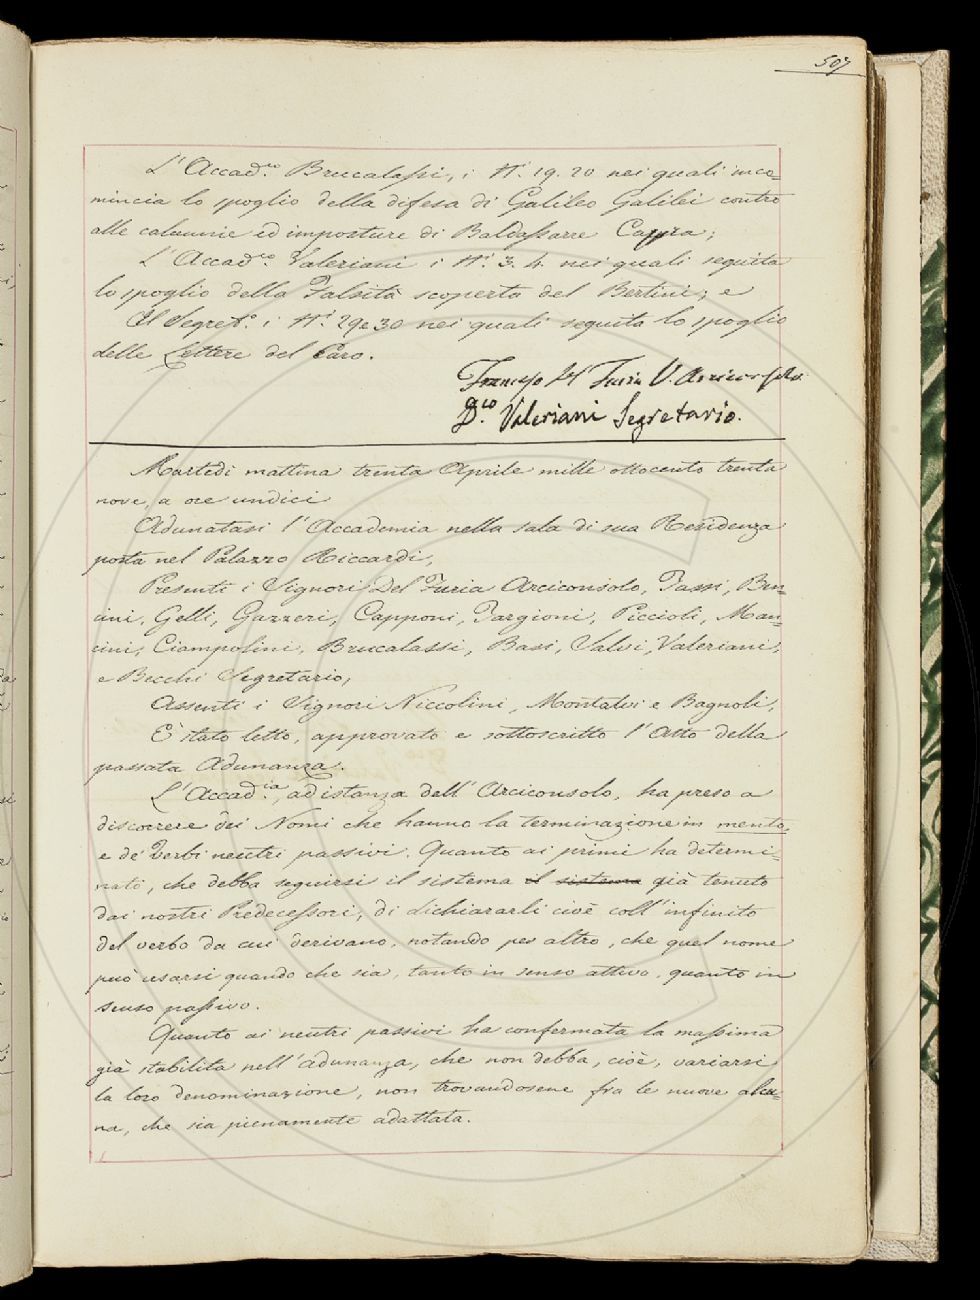 507
L'Accad.co Brucalassi, i N.i 19. 20 nei quali inco=
mincia lo spoglio della difesa di Galileo Galilei contro
alle calunnie ed imposture di Baldassarre Capra;
L'Accad.co Valeriani i N.i 3. 4. nei quali seguita
lo spoglio della Falsità scoperta del Bertini; e
Il Segret.o i N.i 29 e 30 nei quali seguita lo spoglio
delle Lettere del Caro.
Francesco Del Furia
D.co Valeriani Segretario.
Martedì mattina trenta Aprile mille ottocento trenta
nove, a ore undici
Adunatasi l'Accademia nella sala di sua Residenza
posta nel Palazzo Riccardi,
Presenti i Signori Del Furia Arciconsolo, Tassi, Ben=
cini, Gelli, Gazzeri, Capponi, Targioni, Piccioli, Man=
cini, Ciampolini, Brucalassi, Basi, Salvi, Valeriani,
e Becchi Segretario,
Assenti i Signori Niccolini, Montalvi e Bagnoli,
È stato letto, approvato e sottoscritto l'Atto della
passata Adunanza.
L'Accad.ia, ad istanza dell'Arciconsolo, ha preso a
discorrere dei Nomi che hanno la terminazione in mento,
e de' Verbi neutri passivi. Quanto ai primi ha determi=
nato, che debba seguirsi il sistema il sistema già tenuto
dai nostri Predecessori, di dichiararli cioè coll'infinito
del verbo da cui derivano, notando per altro, che quel nome
può usarsi quando che sia, tanto in senso attivo, quanto in
senso passivo.
Quanto ai neutri passivi ha confermata la massima
già stabilita nell'adunanza, che non debba, cioè, variarsi
la loro denominazione, non trovandosene fra le nuove alcu=
na, che sia pienamente adattata.